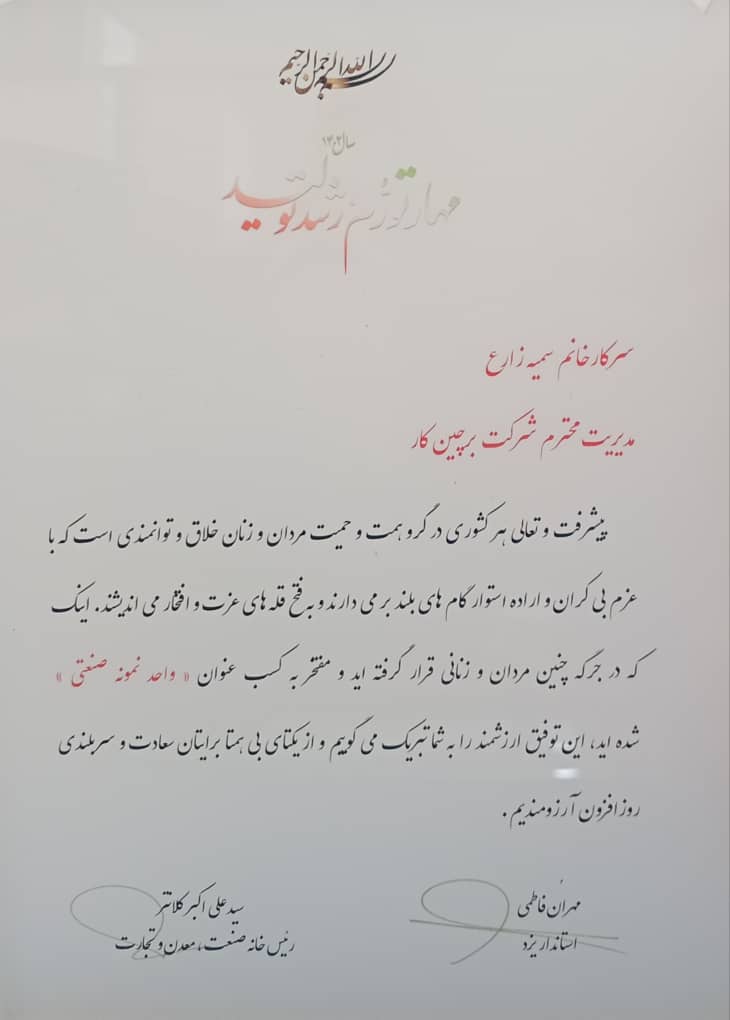 بسم الله الرحمن الرحیم
سال ۱۴۰۲
مهار تورم، رشد تولید
سرکار خانم سمیه زارع
مدیریت محترم شرکت برچین کار
پیشرفت و تعالی هر کشوری در گرو همت و حمیت مردان و زنان خلاق و توانمندی است که با
عزم بی کران و اراده استوار گام های بلند بر می دارند و به فتح قله های عزت و افتخار می اندیشند. اینک
که در جرگه چنین مردان و زنانی قرار گرفته اید و مفتخر به کسب عنوان « واحد نمونه صنعتی »
شده اید، این توفیق ارزشمند را به شما تبریک می گوییم و از یکتای بی همتا برایتان سعادت و سربلندی
روز افزون آرزومندیم .
مهران فاطمی
استاندار یزد
سید علی اکبر کلانتر
رئیس خانه صنعت، معدن و تجارت